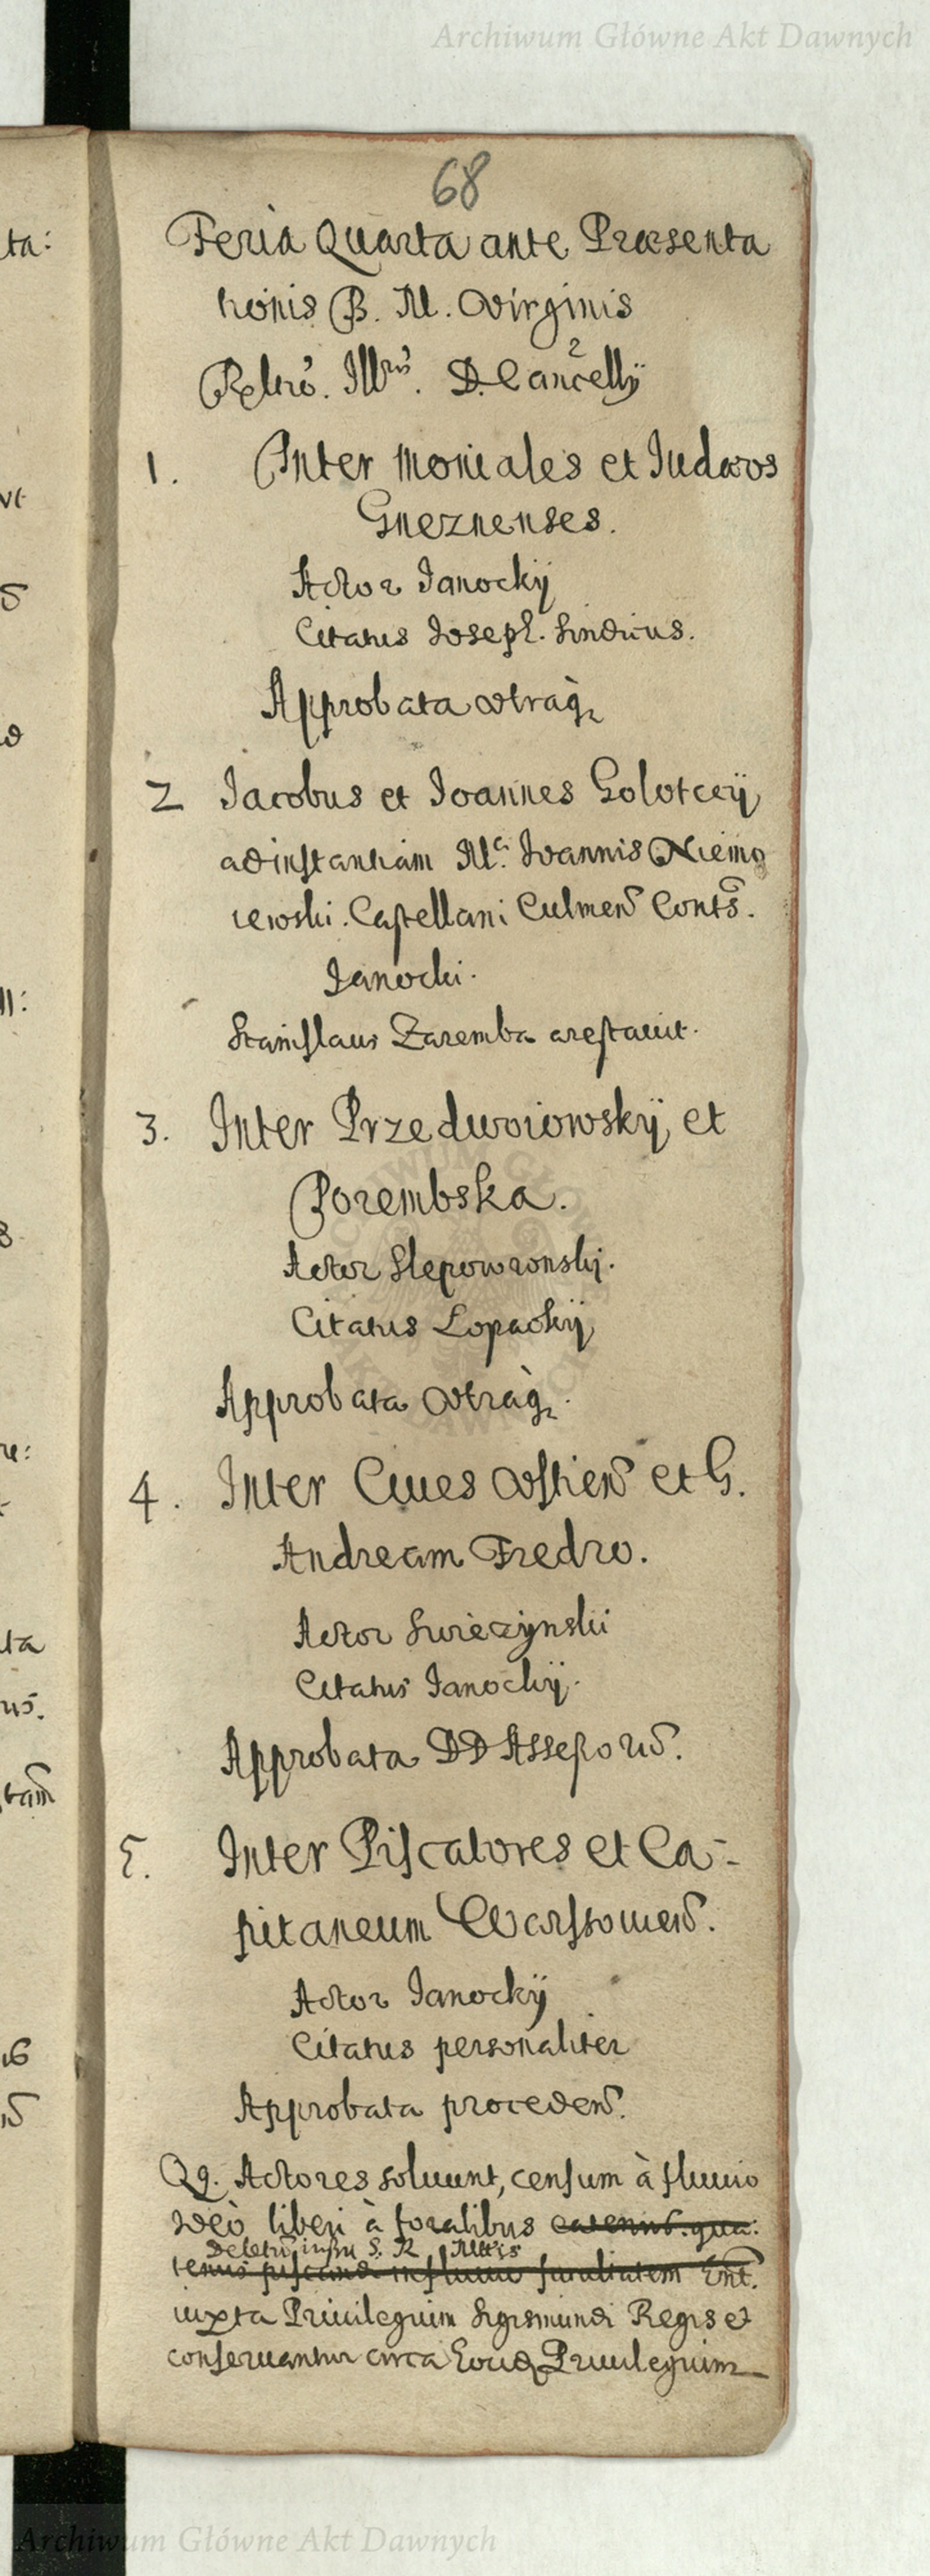 Archiwum Główne Akt Dawnych
68
Feria Quarta ante Præsenta
tionis B. M. Virginis
D. Cancellÿ
1. Inter Moniales et Iudæos
Gneznenses.
Actor Ianockÿ
Citatus Joseph. Sindicus.
Approbata vtraq
2 Jacobus et Joannes Golotceÿ
ad instantiam Joannis Niemo
iewski. Castellani Culmen Conts.
Janocki.
Stanislaus Zaremba arestauit.
3. Inter Przedwoiowskÿ et
Porembska.
Actor Slepowronskj.
Citatus Lopackÿ
Approbata vtraq.
4. Inter Ciues Vstien et G.
Andream Fredro.
Actor Swiezÿnskii
Citatus Janockÿ.
Approbata DD Assessorũ.
5. Inter Piscatores et Ca-
pitaneum Warssouien.
Actor Janockÿ
Citatus personaliter
Approbata proceden.
Qq. Actores soluunt, censum à fluuio
ideò liberi à foralibus eatenus. qua:
Deletũ iussu S. R. Mttis
tenus piscand in fluuio
iuxta Priuilegium Sigismundi Regis et
conseruantur circa Priuilegium
Archiwum Główne Akt Dawnych